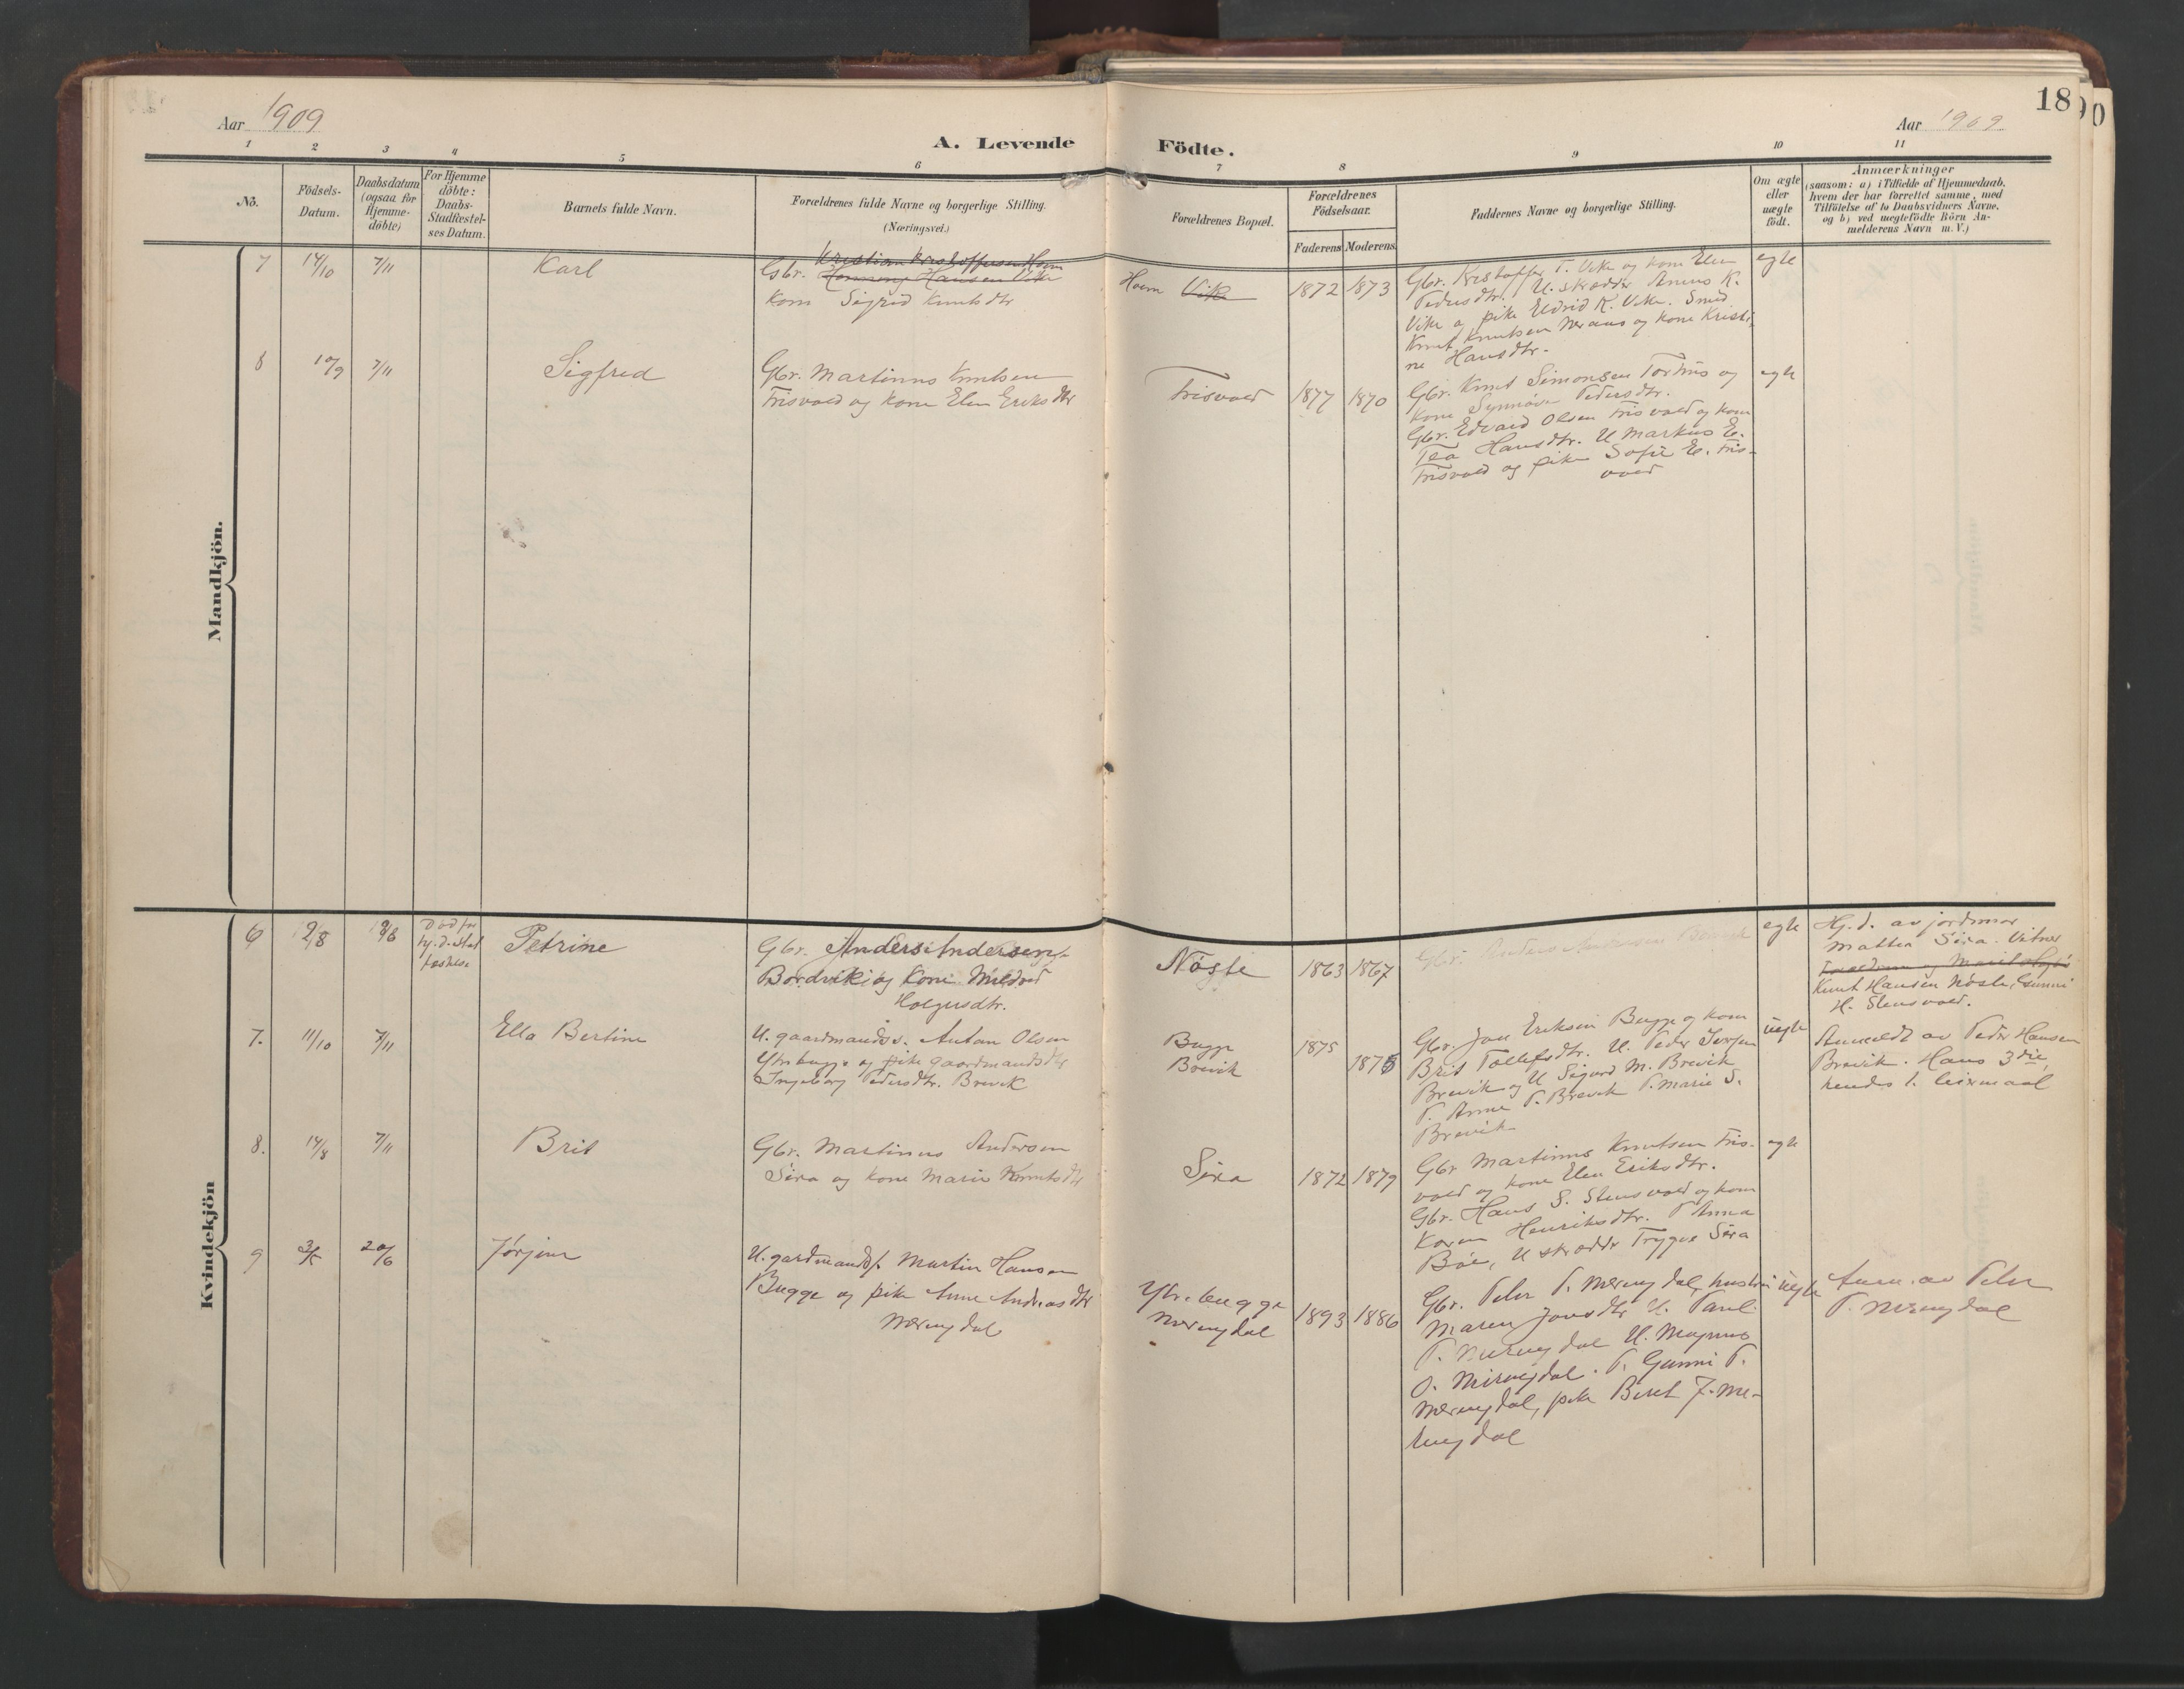 18
Aar 1909
A. Levende Födte.
Aar 1909
1 2 3 4 5 6 7 8 9 10 11
Nö.
Födsels-
Datum.
Daabsdatum
(ogsaa for
Hjemme-
döbte)
For Hjemme
döbte:
Daabs-
Stadfæstel-
ses Datum.
Barnets fulde Navn.
Forældrenes fulde Navne og borgerlige Stilling.
(Næringsvei.)
Forældrenes Bopæl.
Forældrenes
Födselsaar.
Faderens Moderens
Faddernes Navne og borgerlige Stilling.
Om ægte
eller
uægte
födt.
Anmærkninger
(saasom: a) i Tilfælde af Hjemmedaab,
hvem der har forrettet samme, med
Tilföielse af to Daabsvidners Navne,
og b) ved uegtefödte Börn An-
melderens Navn m. V.)
Mandkjön.
7
14/10
7/11
Karl
Kristian Kristoffersen Hoem
Gbr. Hansen Vike
kone Sigrid Knutsdtr
Hoem Vike
1872 1873
Gbr. Kristoffer T. Vike og kone Elen
Pedersdtr. U. skrædder Anens K.
Vike og pike Eldrid K. Vike. Smed
Knut Knutsen Neraas og kone Kristi-
ne Hansdtr.
egte
8
10/9
7/11
Sigfred
Gbr. Martinus Knutsen
Frisvold og kone Elen Eriksdtr
Frisvold
1877 1870
Gbr. Knut Simonsen Torhus og
kone Synnöve Pedersdtr.
Gbr. Edvard Olsen Frisvold og kone
Tea Hansdtr. U Markus E.
Frisvold og pike Sofie E. Fris-
vold
egte
Kvindekjön
6
Död før
hj.d. stad
fæstelse
Petrine
Gbr. Anders Andersen
Bordvik og kone Mildrid
Holgersdtr.
Nöste
1863 1867
Gbr. Anders Andersen
egte
Hj.d. av jordmor
Mattea Sira. Vitner
Forældrene og Marit
Knut Hansen Nöste, Gunni
H. Stensvold.
7.
11/10
7/11
Ella Bertine
U. gaardmands. Anton Olsen
Ytrebugge og pike gaardmandsdtr
Ingeborg Pedersdtr. Brevik
Bugge
Brevik
1875
1875
Gbr. Jon Eriksen Bugge og kone
Brit Tollefsdtr. U. Peder Iversen
Brevik og U Sigurd M. Brevik
P. Anne P. Brevik P. Marie S.
Brevik
uegte
Anmeldt av Peder Hansen
Brevik. Hans 3die,
hendes 1. leiermaal
8.
14/8
7/11
Brit
Gbr. Martinus Andersen
Sira og kone Marie Knutsdtr
Sira
1872 1879
Gbr Martinus Knutsen Fris-
vold og kone Elen Eriksdtr.
Gbr. Hans S. Stensvold og kone
Karen Henriksdtr. P Anna
Böe, U skrædder Trygve Sira
egte
9
3/5
20/6
Jörjine
U. gardmands. Martin Hansen
Bugge og pike Anne Andreasdtr
Meringdal
Ytrebugge
Meringdal
1893 1886
Gbr. Peder P. Meringdal, hustru
Maren Jonsdtr U. Paul
P. Meringdal U. Magnus
O. Meringdal. P. Gunni P.
Meringdal, pike Beret J. Me-
ringdal
uegte
Anm. av Peder
P. Meringdal